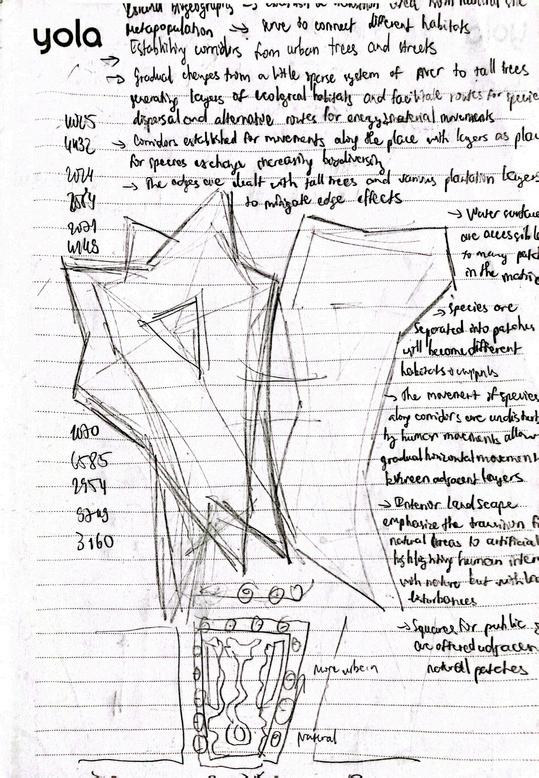 yola
Metapopulation → serve to connect different habitats
Establishing corridors from urban trees and streets
→ Gradual changes from a little sparse system of river to tall trees
generating layers of ecological habitats and facilitate routes for species
dispersal and alternative routes for energy & material movements
→ Corridors established for movements along the place with layers as
for species exchange increasing biodiversity
→ The edges are dealt with tall trees and various plantation layers
to mitigate edge effects
4432
2024
2021
→ Water surface
are accessible
to many
in the
→ Species are
separated into patches
will become different
habitats
→ The movement of species
along corridors are
by human movements
gradual horizontal movement
between adjacent layers
→ Interior landscape
emphasize the transition
natural areas to artificial
highlighting human
with nature but with
disturbances
→ Squares for public
are offered
natural patches
2070
6585
2954
3160
more urban
natural